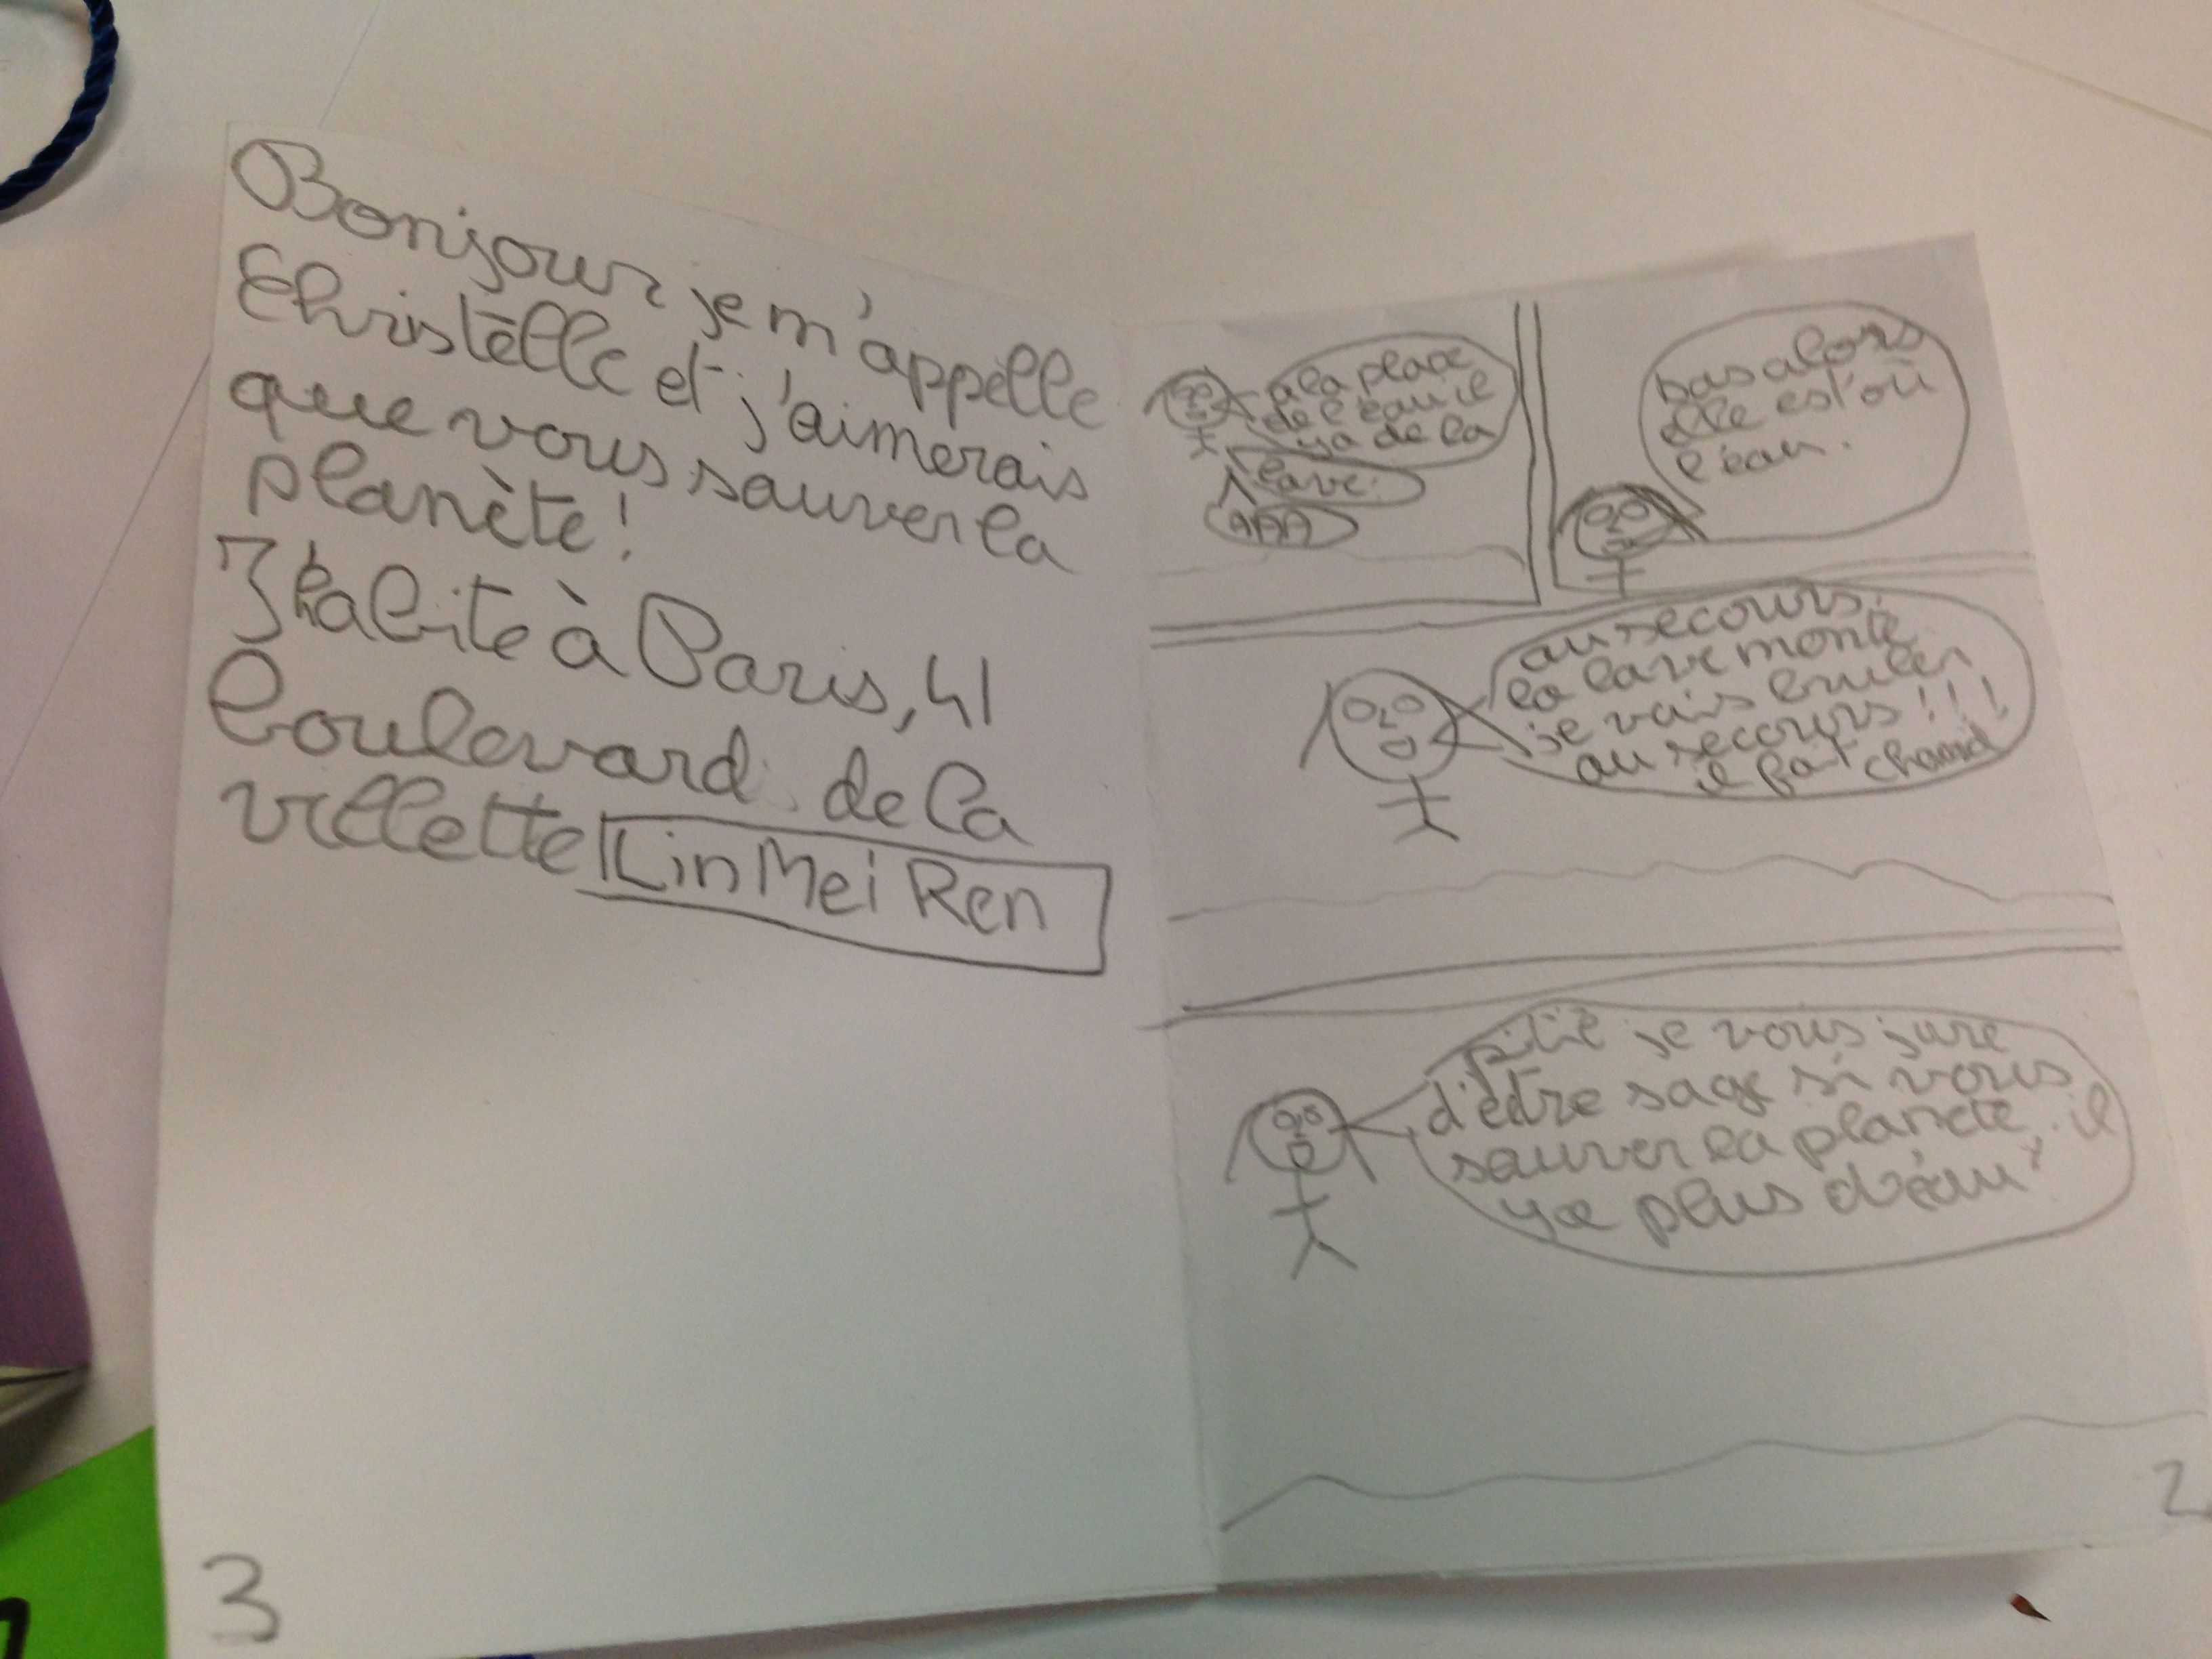 Bonjour je m'appelle
Christèlle et j'aimerais
que vous sauver la
planète!
J'habite à Paris, 41
boulevard de la
villette Lin Mei Ren
3
a la place
de l'eau il
ya de la
lave
AAA
bas alors
elle est où
l'eau.
au secours
la lave monte
je vais bruler
au secours!!!
il fait chaud
pitié je vous jure
d'être sage si vous
sauver la planète, il
ya plus d'eau!
2